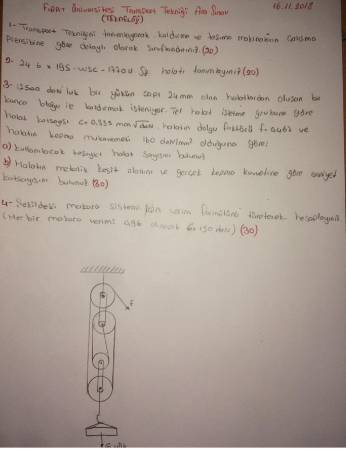 Fırat Üniversitesi Transport Tekniği Ara Sınav 16.11.2018
(TEKNOLOJİ)
1- Transport Tekniğini tanımlayarak kaldırma ve taşıma makinalarını Çalışma
Prensibine göre detaylı olarak sınıflandırınız (20)
2- 24 6 x 19S - WSC - 1770 U SZ halatı tanımlayınız (20)
3- 12500 daN luk bir yükün çapı 24mm olan halatlardan oluşan bir
kanca bloğu ile kaldırmak isteniyor. Tel halat işletme grubuna göre
halat katsayısı c=0,335 mm√daN, halatın dolgu faktörü f= ve
halatın kopma mukavemeti 160 daN/mm² olduğuna göre;
a) Kullanılacak taşıyıcı halat sayısını bulunuz
b) Halatın metalik kesit alanını ve gerçek kopma kuvvetine göre emniyet
katsayısını bulunuz (30)
4- Şekildeki makara sistemi için verim formülünü türeterek hesaplayınız
(Her bir makara verimi olarak daN) (30)
F